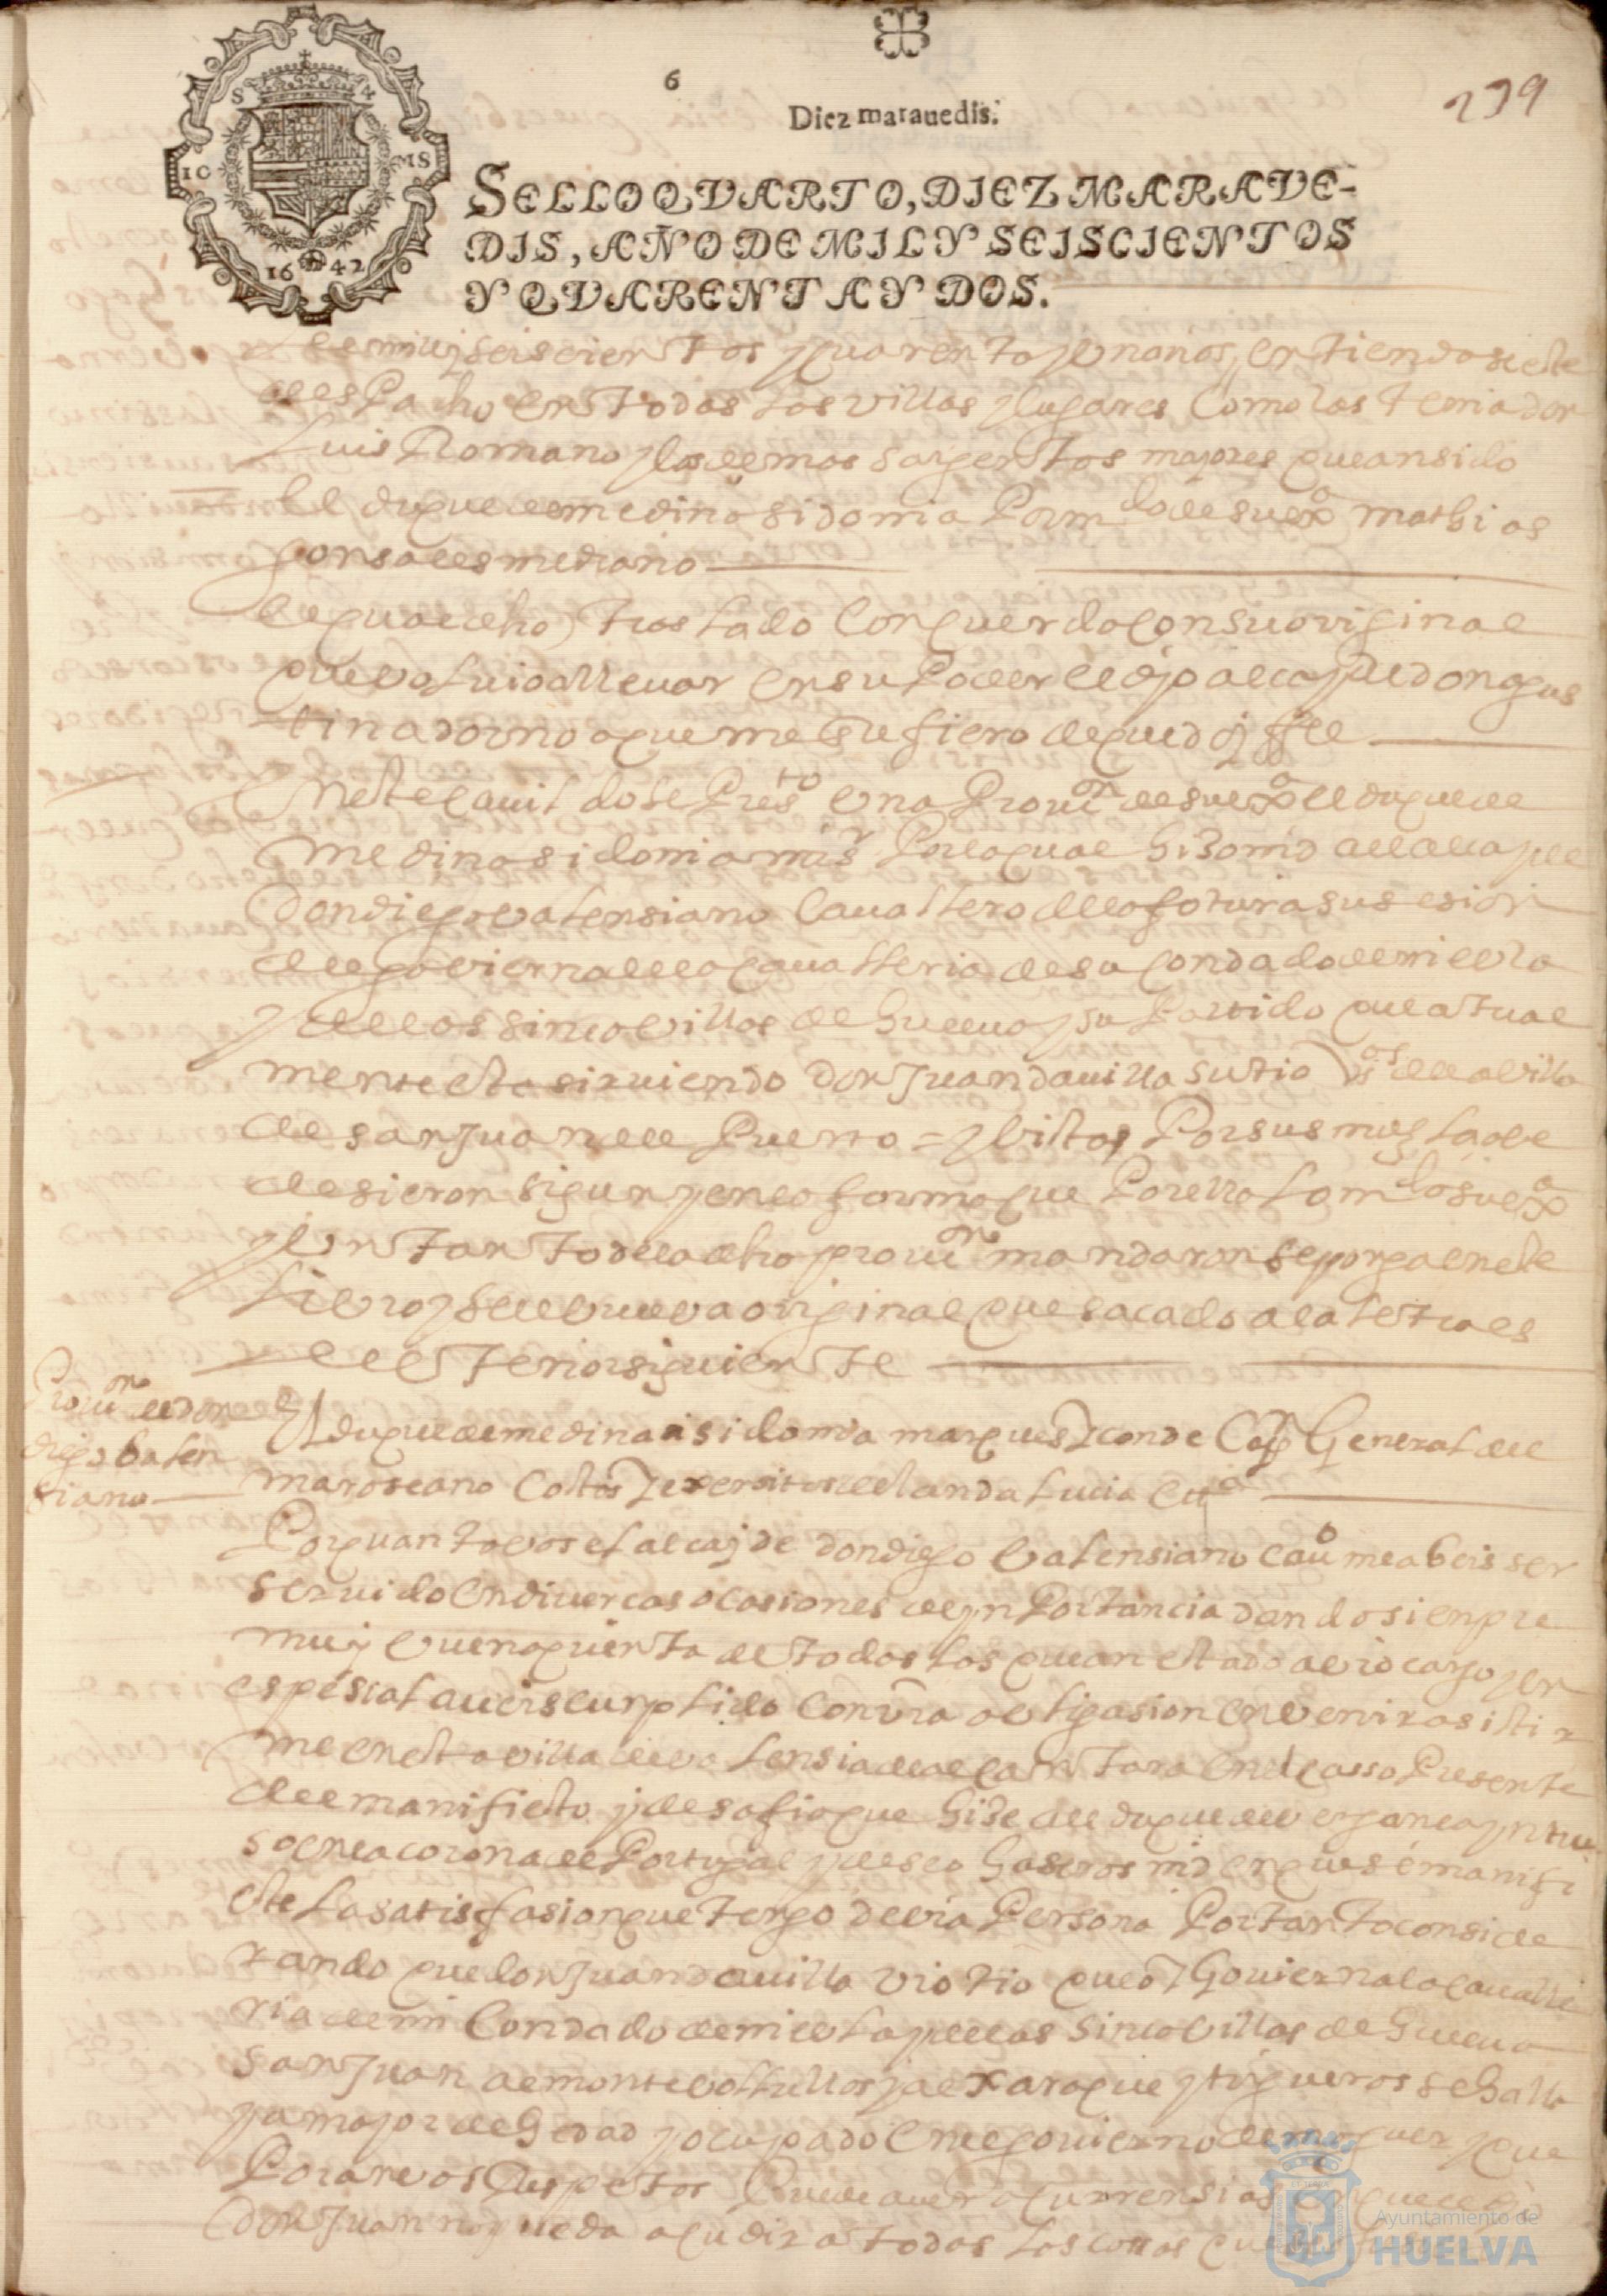 239
6
Diez marauedis.
SELLO QVARTO, DIEZ MARAVE-
DIS, AÑO DE MIL Y SEISCIENTOS
Y QVARENTA Y DOS.
S 4
IO MS
1642
de mill y seiscientos y quarenta y un anos, entiendase este
despacho en todas las villas y lugares como las tenia don
Luis Romano y los demas sargentos majores que an sido
El duque de medina sidonia Por mdo de su exa mathias
gonsales mediano
el qual dho traslado concuerda con su original
que volvio a llevar en su Poder el dho alcayde don agus
tin adorno a que me Refiero de que doy ffee
En este cavildo se Presto una Provon de su exa el duque de
medina sidonia mi sr Por la qual hiso md al alcayde
don diego valensiano cavallero de la fotura susesion
del govierno de la cavalleria de su condado de niebla
y de las sinco villas de Guelva y su Partido que atual
mente esta sirviendo don Juan davilla su tio vso de la villa
de san Juan del Puerto = y vistos Por sus mds la obe
desieron sigun y en la forma que Por ella lo mdo su exa
y un tanto de la dha provon mandaron se ponga en este
Libro y se le buelva original que sacado a la letra es
del Tenor siguiente
Provon de don
diego balen
siano
El duque de medina sidonia marques y conde Cap General del
mar oseano costas y exersitos del andalucia etca
Por quanto vos el alcayde don diego valensiano cavo me abeis ser
servido en divercas ocasiones de ynPortancia dando sienpre
muy buena quenta de todas las que an estado a vro cargo y en
espesial aveis cunplido con vra obligasion en venir a sistir
me en esta villa de valensia de alcantara en el casso Presente
del manifiesto y desafio que hise al duque de verganca yntru
so en la corona de Portugal y deseo haseros md en que se manifi
este la satisfasion que tengo de vra Persona Por tanto conside
rando que don Juan davilla vro tio que oy Govierna la cavalle
ria de mi Condado de niebla y de las sinco villas de Guelva
san Juan almonte bollullos y alxaraque y trigueros se halla
ya mayor de hedad y ocupado en el govierno de moguer y que
Por anvos Respetos Puede aver ocurrensias en que el dho
don Juan no pueda acudir a todas las cossas que
Ayuntamiento de
HUELVA